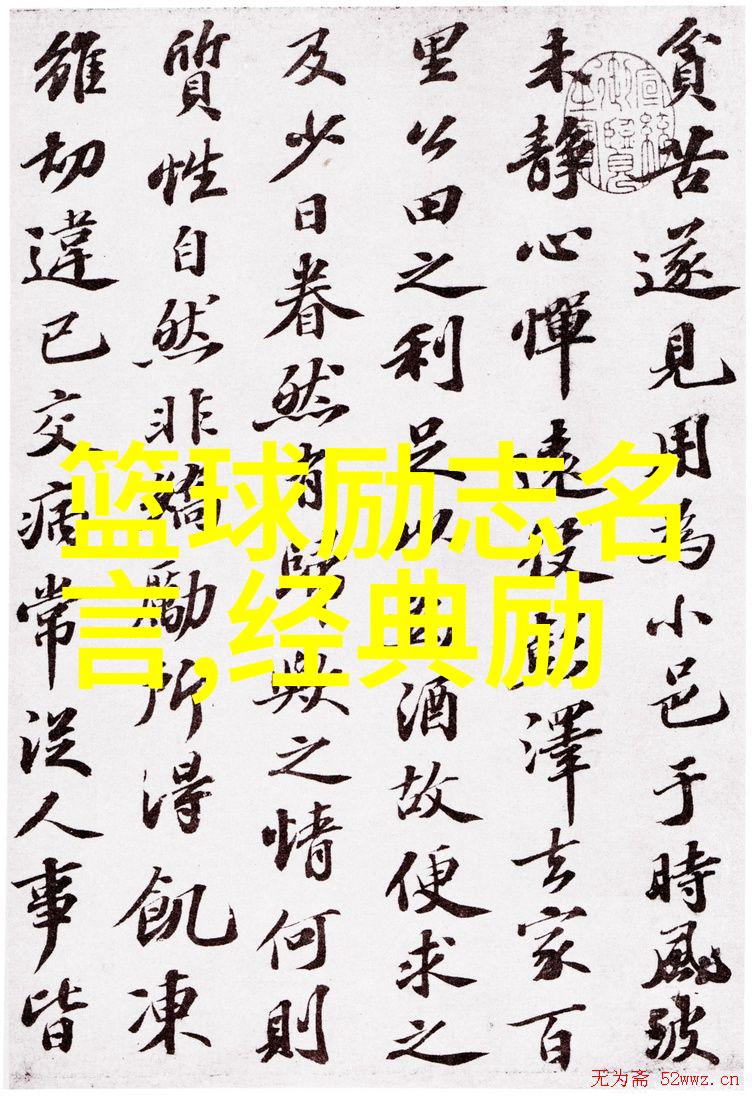 貧苦遂見用為小邑于時風波
未靜心憚遠役彭澤去家百
里公田之利足以為酒故便求之
及少日眷然有歸歟之情何則
質性自然非矯勵所得飢凍
雖切違已交病常從人事皆
篮球励志名
言,经典励
无为斋 52wwz.cn